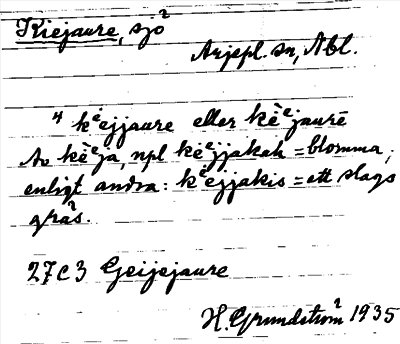 Kiejaure, sjö
Arjepl. sn, Nbl.
"kėejjaure eller kėejaurē
Av kėeja, npl kėejjakah = blomma;
enligt andra: kėejjakis = ett slags
gräs.
27C3 Geijejaure
H. Grundström 1935